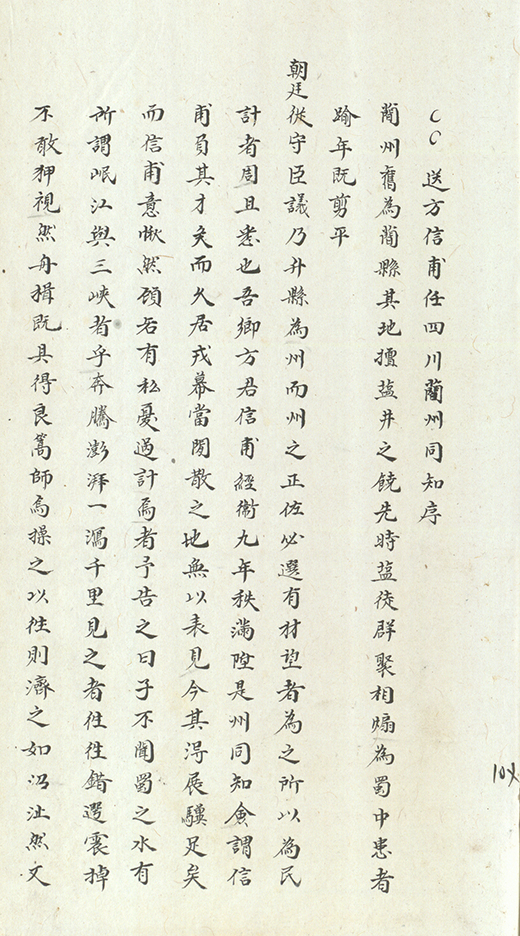 送方信甫任四川蘭州同知序
蘭州舊為蘭縣其地擅塩井之饒先時塩徒群聚相煽為蜀中患者
踰年既剪平
朝廷從守臣議乃升縣為州而州之正佐必選有材望者為之所以為民
計者周且悉也吾鄉方君信甫經衛九年秩滿陞是州同知僉謂信
甫負其才矣而久居戎幕當閒散之地無以表見今其得展驥足矣
而信甫意愀然顧若有私憂過計焉者予告之曰子不聞蜀之水有
所謂岷江與三峽者乎奔騰澎湃一瀉千里見之者往往錯遌震掉
不敢狎視然舟楫既具得良篙師焉操之以往則濟之如沼沚然文
10X